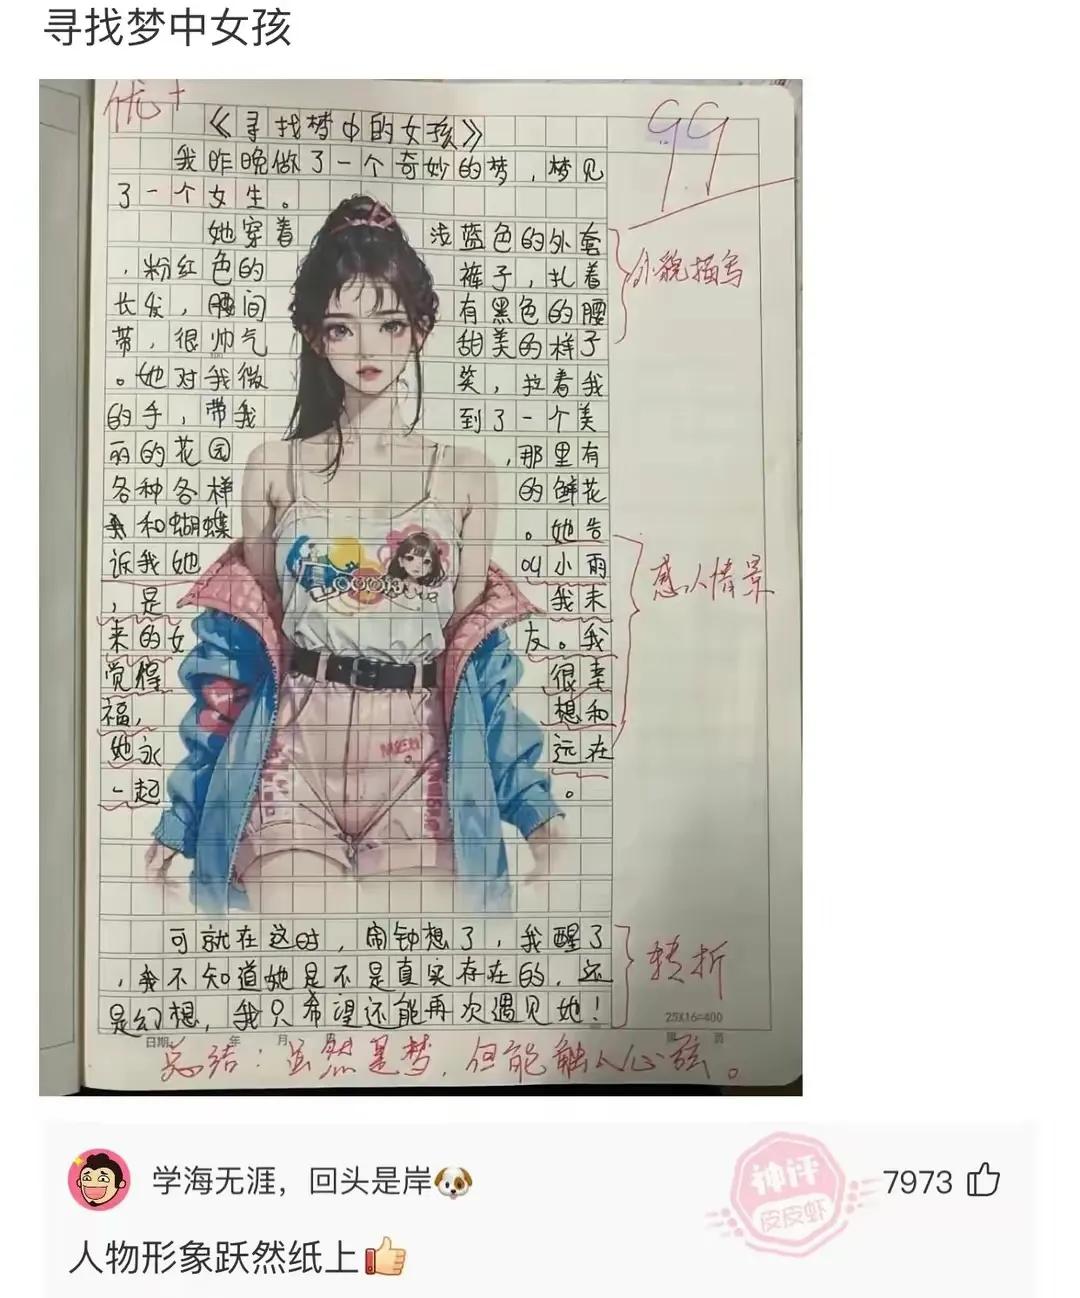 寻找梦中女孩
优+
99
《寻找梦中的女孩》
我昨晚做了一个奇妙的梦，梦见
了一个女生。
她穿着浅蓝色的外套
，粉红色的裤子，扎着
长发，腰间有黑色的腰
带，很帅气甜美的样子
。她对我微笑，拉着我
的手，带我到了一个美
丽的花园，那里有
各种各样的鲜花
和蝴蝶。她告
诉我她叫小雨
，是我未
来的女友。我
觉得很幸
福，想和
她永远在
一起。
可就在这时，闹钟想了，我醒了
，我不知道她是不是真实存在的，还
是幻想，我只希望还能再次遇见她！
外貌描写
感人情景
转折
25X16=400
日期 年 月
页
总结：虽然是梦，但能触人心弦。
学海无涯，回头是岸🐶
神评
皮皮虾
7973
人物形象跃然纸上👍